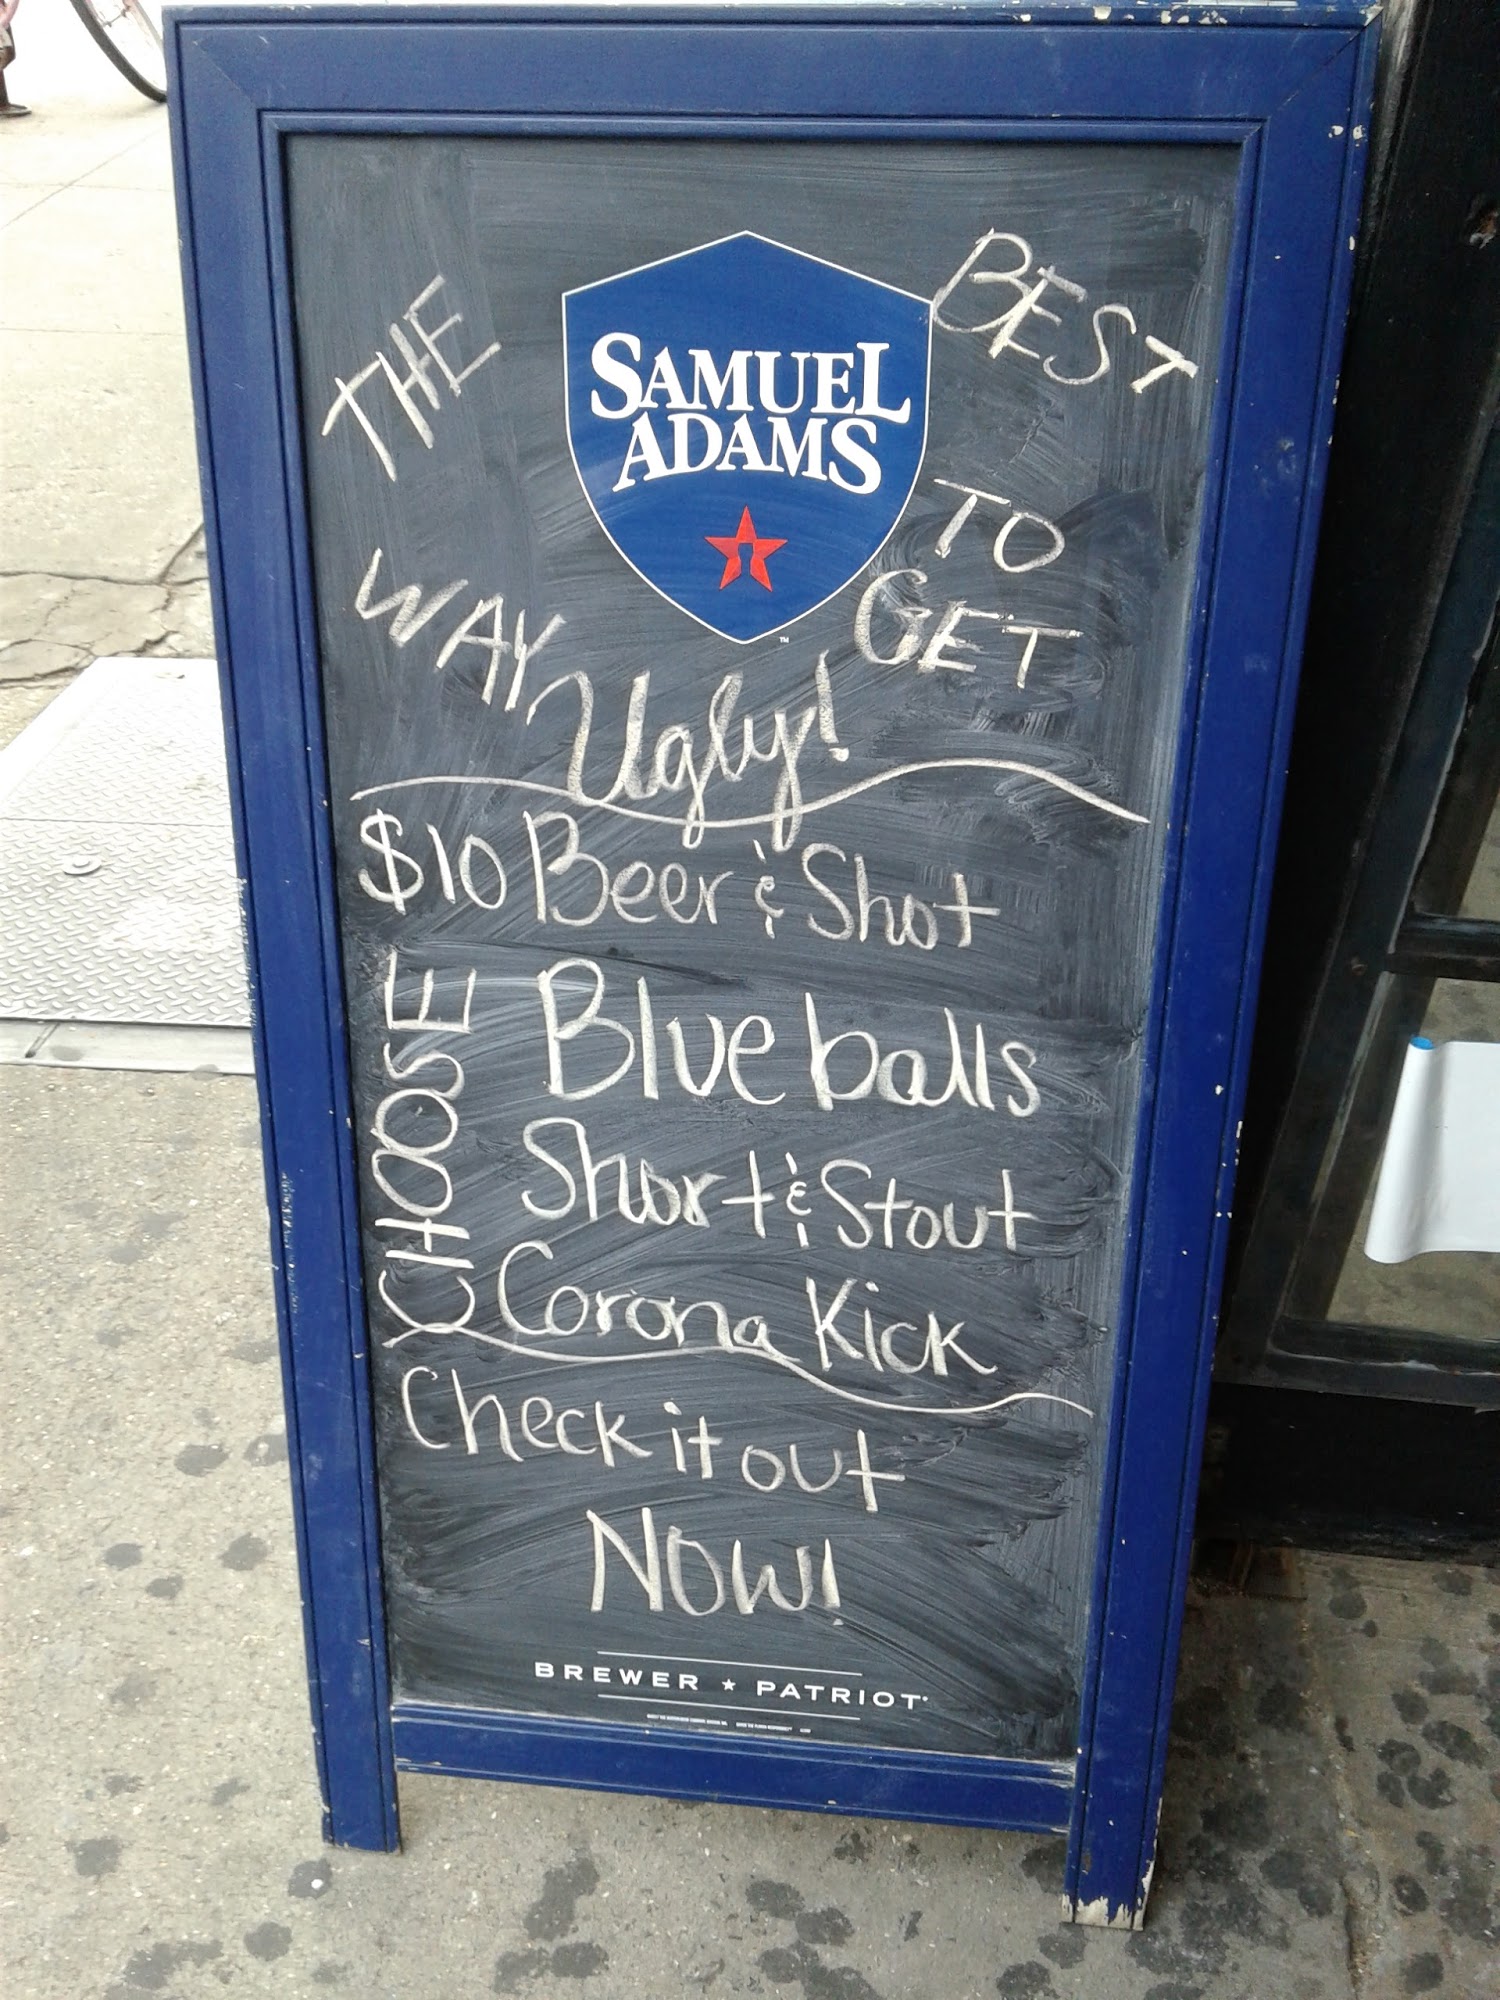 THE BEST
SAMUEL
ADAMS
WAY TO
GET
Ugly!
$10 Beer & Shot
CHOOSE
Blue balls
Short & Stout
Corona Kick
Check it out
NOW!
BREWER ★ PATRIOT